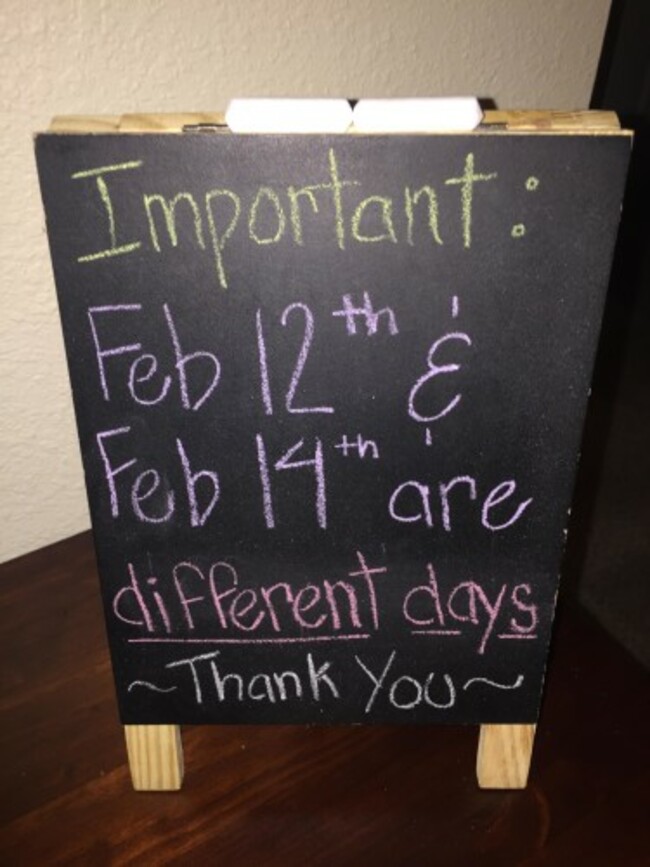 Important:
Feb 12th &
Feb 14th are
different days
~Thank You~